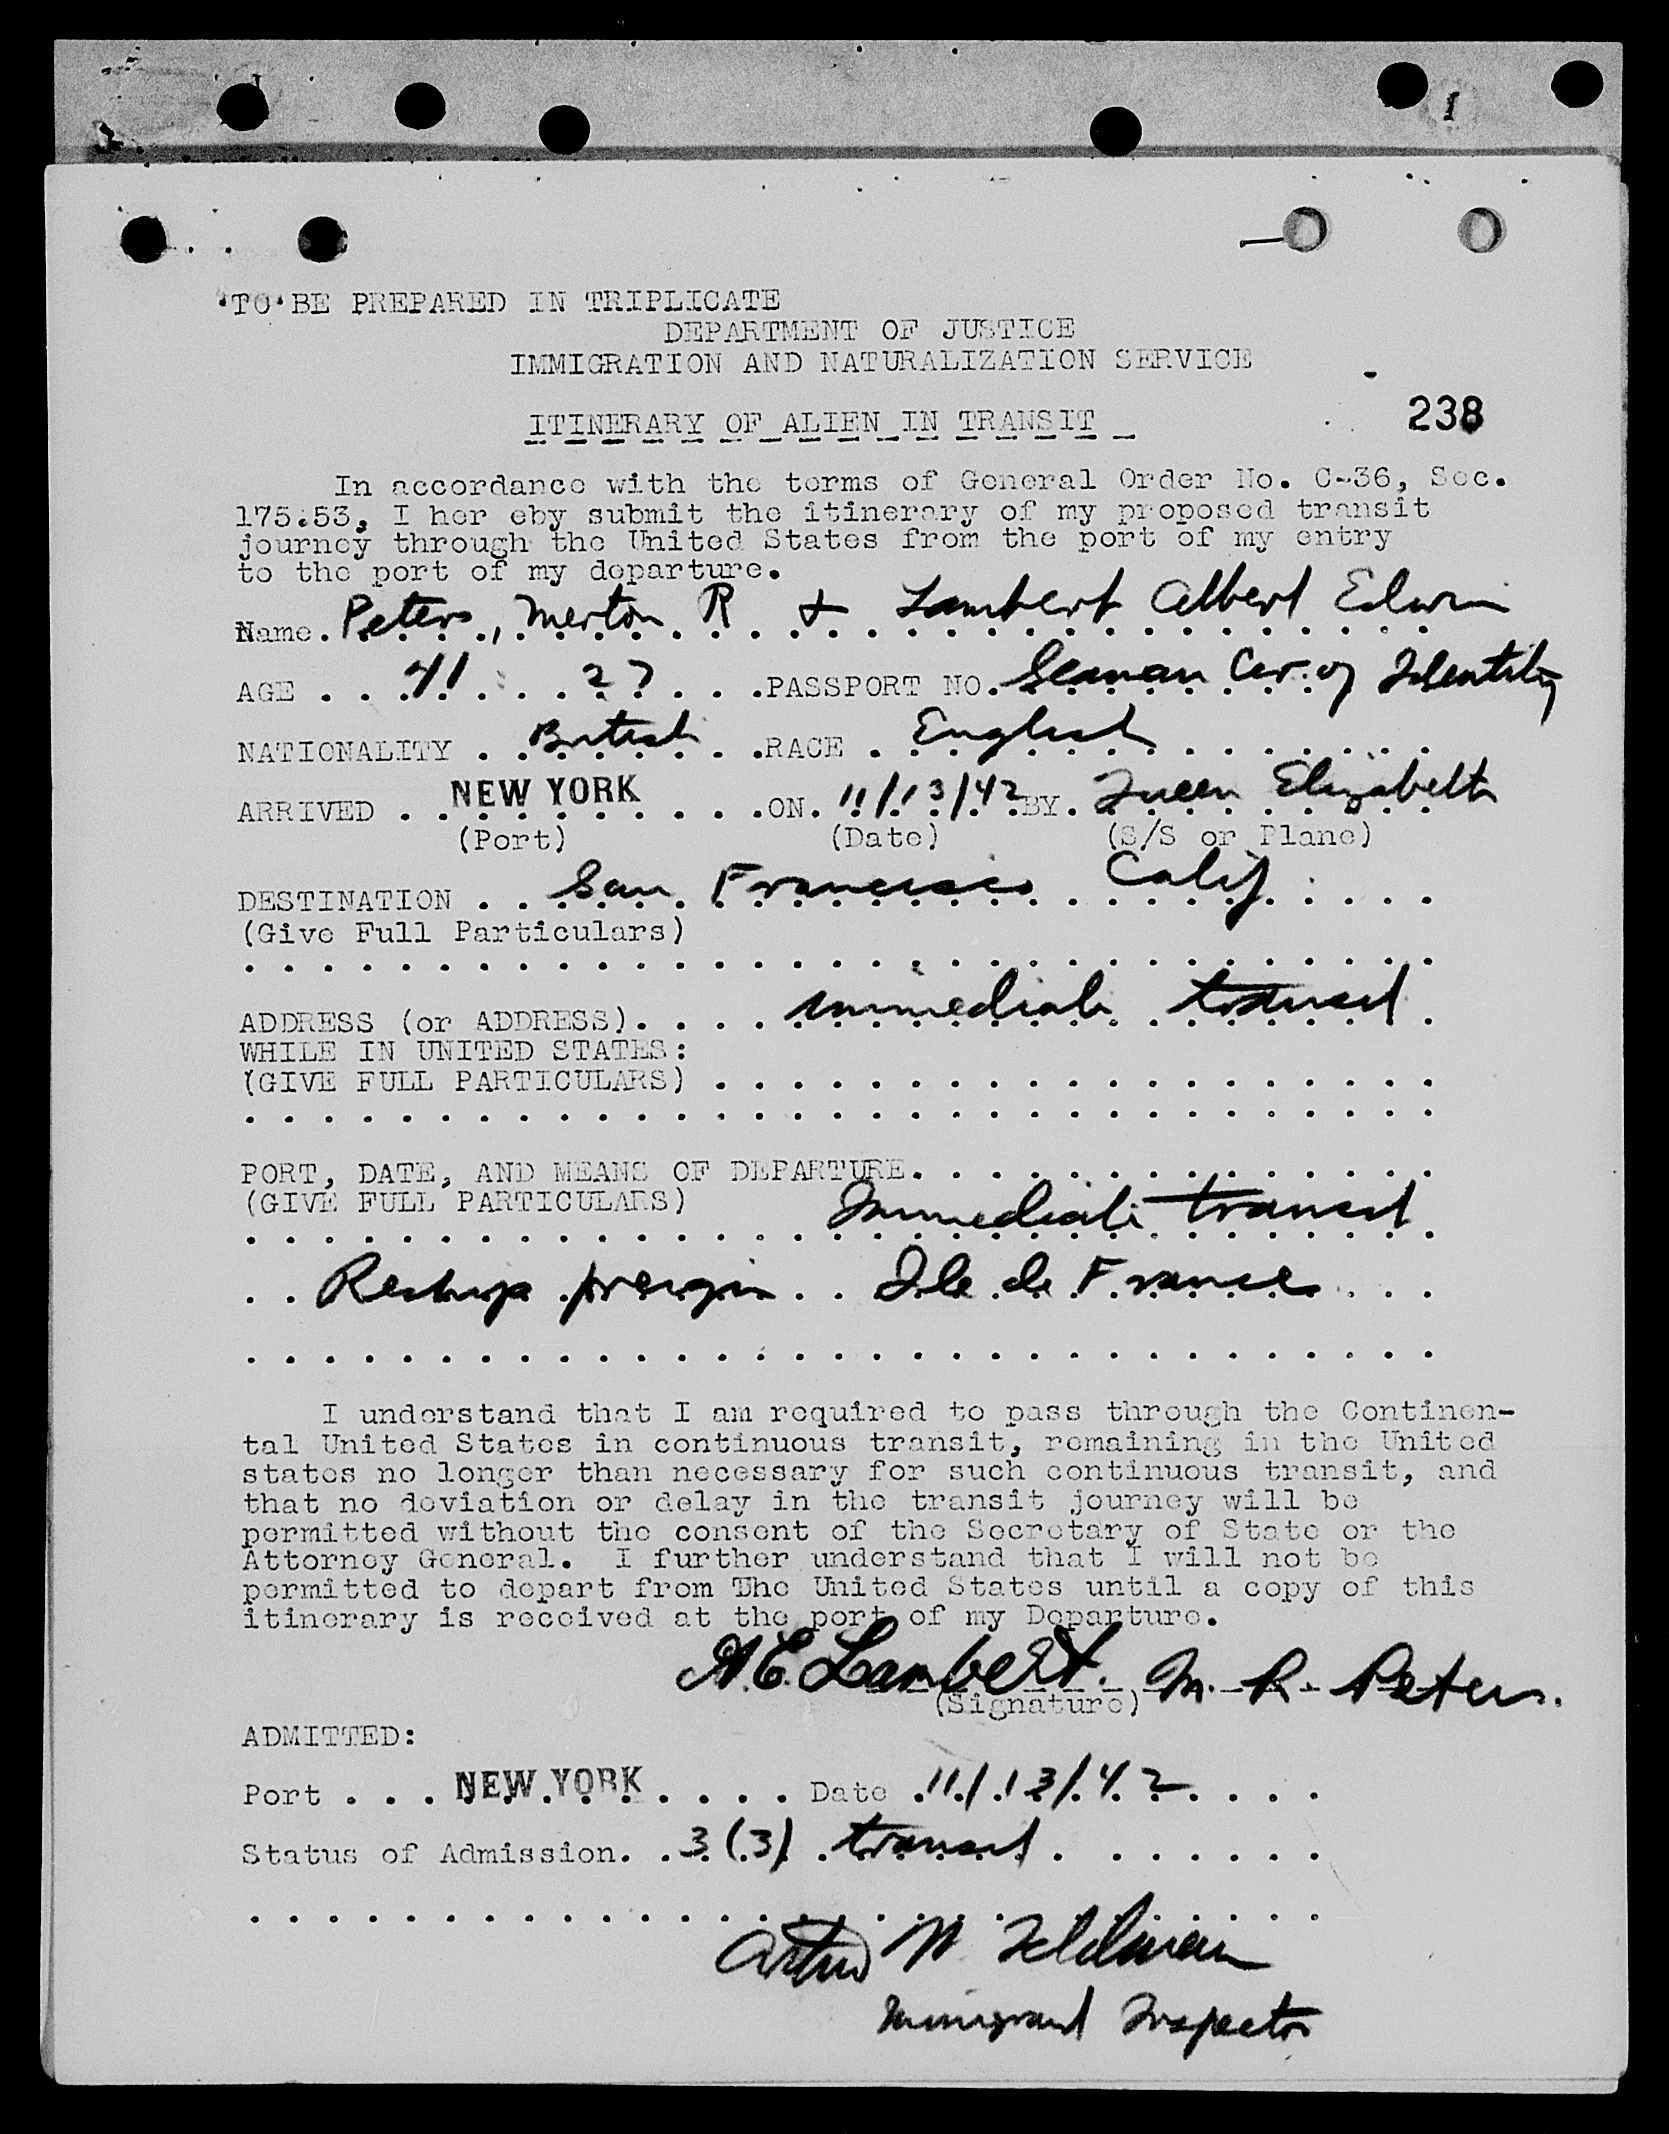 TO BE PREPARED IN TRIPLICATE
DEPARTMENT OF JUSTICE
IMMIGRATION AND NATURALIZATION SERVICE
ITINERARY OF ALIEN IN TRANSIT
238
In accordance with the terms of General Order No. C-36, Sec.
175.53, I her eby submit the itinerary of my proposed transit
journey through the United States from the port of my entry
to the port of my departure.
Name. Peters, Merton R + Lambert Albert Edwin
AGE . . 41 . . . 27 . . . PASSPORT NO. Seaman Cer. of Identity
NATIONALITY . British . . RACE . English
ARRIVED . NEW YORK . . . ON. 11/13/42 BY. Queen Elizabeth
(Port) (Date) (S/S or Plane)
DESTINATION . . San Francisco Calif.
(Give Full Particulars)
ADDRESS (or ADDRESS). . . . immediate transit
WHILE IN UNITED STATES:
(GIVE FULL PARTICULARS)
PORT, DATE, AND MEANS OF DEPARTURE.
(GIVE FULL PARTICULARS)
Immediate transit
Reship foreign . . Ile de France
I understand that I am required to pass through the Continen-
tal United States in continuous transit, remaining in the United
states no longer than necessary for such continuous transit, and
that no deviation or delay in the transit journey will be
permitted without the consent of the Secretary of State or the
Attorney General. I further understand that I will not be
permitted to depart from The United States until a copy of this
itinerary is received at the port of my Departure.
A.E. Lambert. M. R. Peters.
(Signature)
ADMITTED:
Port . . . NEW YORK . . . . Date . 11/13/42
Status of Admission. . 3(3) . transit
Arthur W. Feldman
Immigrant Inspector